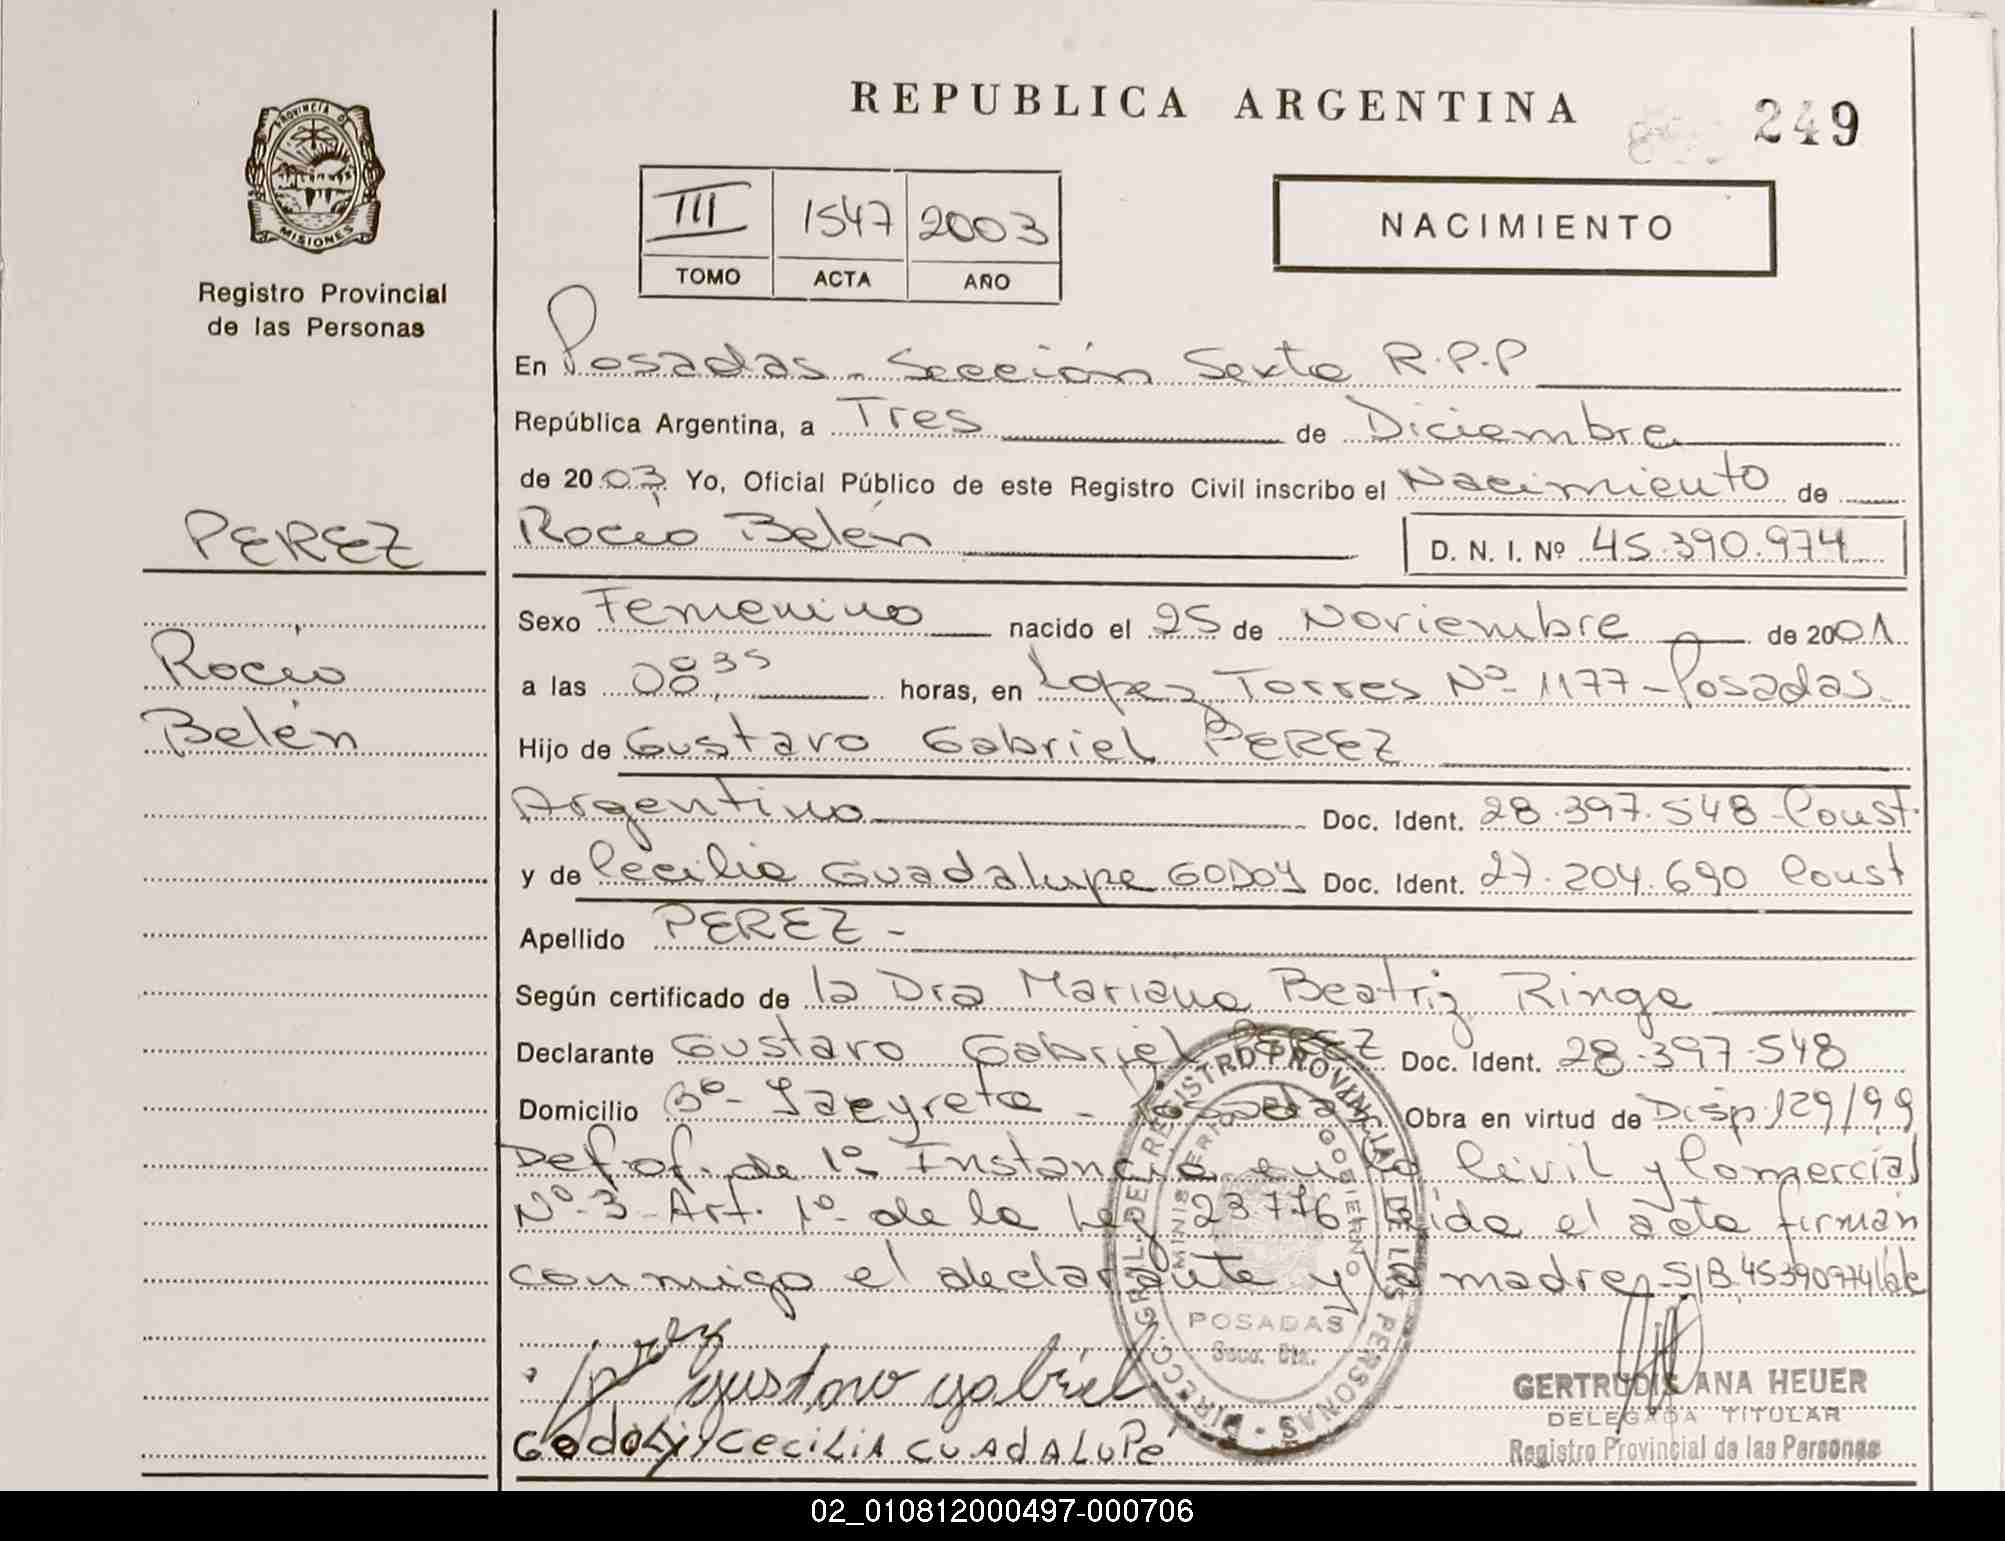 REPUBLICA ARGENTINA
249
PROVINCIA D
MISIONES
Registro Provincial
de las Personas
III 1547 2003
TOMO ACTA AÑO
NACIMIENTO
En Posadas - Sección Sexta R.P.P
República Argentina, a Tres de Diciembre
de 2003 Yo, Oficial Público de este Registro Civil inscribo el Nacimiento de
Rocío Belén D. N. I. Nº 45.390.974
PEREZ
Rocío
Belén
Sexo Femenino nacido el 25 de Noviembre de 2001
a las 08,35 horas, en Lopez Torres Nº 1177 - Posadas
Hijo de Gustavo Gabriel PEREZ
Argentino Doc. Ident. 28.397.548 - Const.
y de Cecilia Guadalupe GODOY Doc. Ident. 27.204.690 Const
Apellido PEREZ -
Según certificado de la Dra Mariana Beatriz Ringa
Declarante Gustavo Gabriel PEREZ Doc. Ident. 28.397.548
Domicilio Bº Yacyreta - Posadas Obra en virtud de Disp. 129/99
Def. of. de 1º Instancia en lo Civil y Comercial
Nº 3 - Art. 1º de la Ley 23776 Leida el acta firman
conmigo el declarante y la madre - S/B 45390974
Perez Gustavo Gabriel
Godoy Cecilia Guadalupe
DIRECC. GRAL. DEL REGISTRO PROVINCIAL DE LAS PERSONAS
MINISTERIO GOBIERNO
POSADAS
Secc. 6ta.
GERTRUDIS ANA HEUER
DELEGADA TITULAR
Registro Provincial de las Personas
02_010812000497-000706